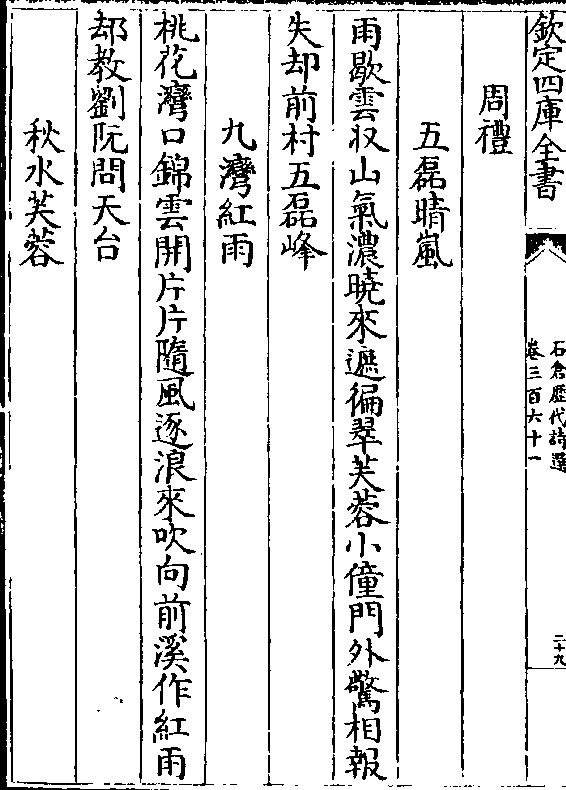 欽定四庫全書
石倉歷代詩選
卷三百六十一
二十九
周禮
五磊晴嵐
雨歇雲収山氣濃曉來遮徧翠芙蓉小僮門外驚相報
失却前村五磊峰
九灣紅雨
桃花灣口錦雲開片片隨風逐浪來吹向前溪作紅雨
却教劉阮問天台
秋水芙蓉